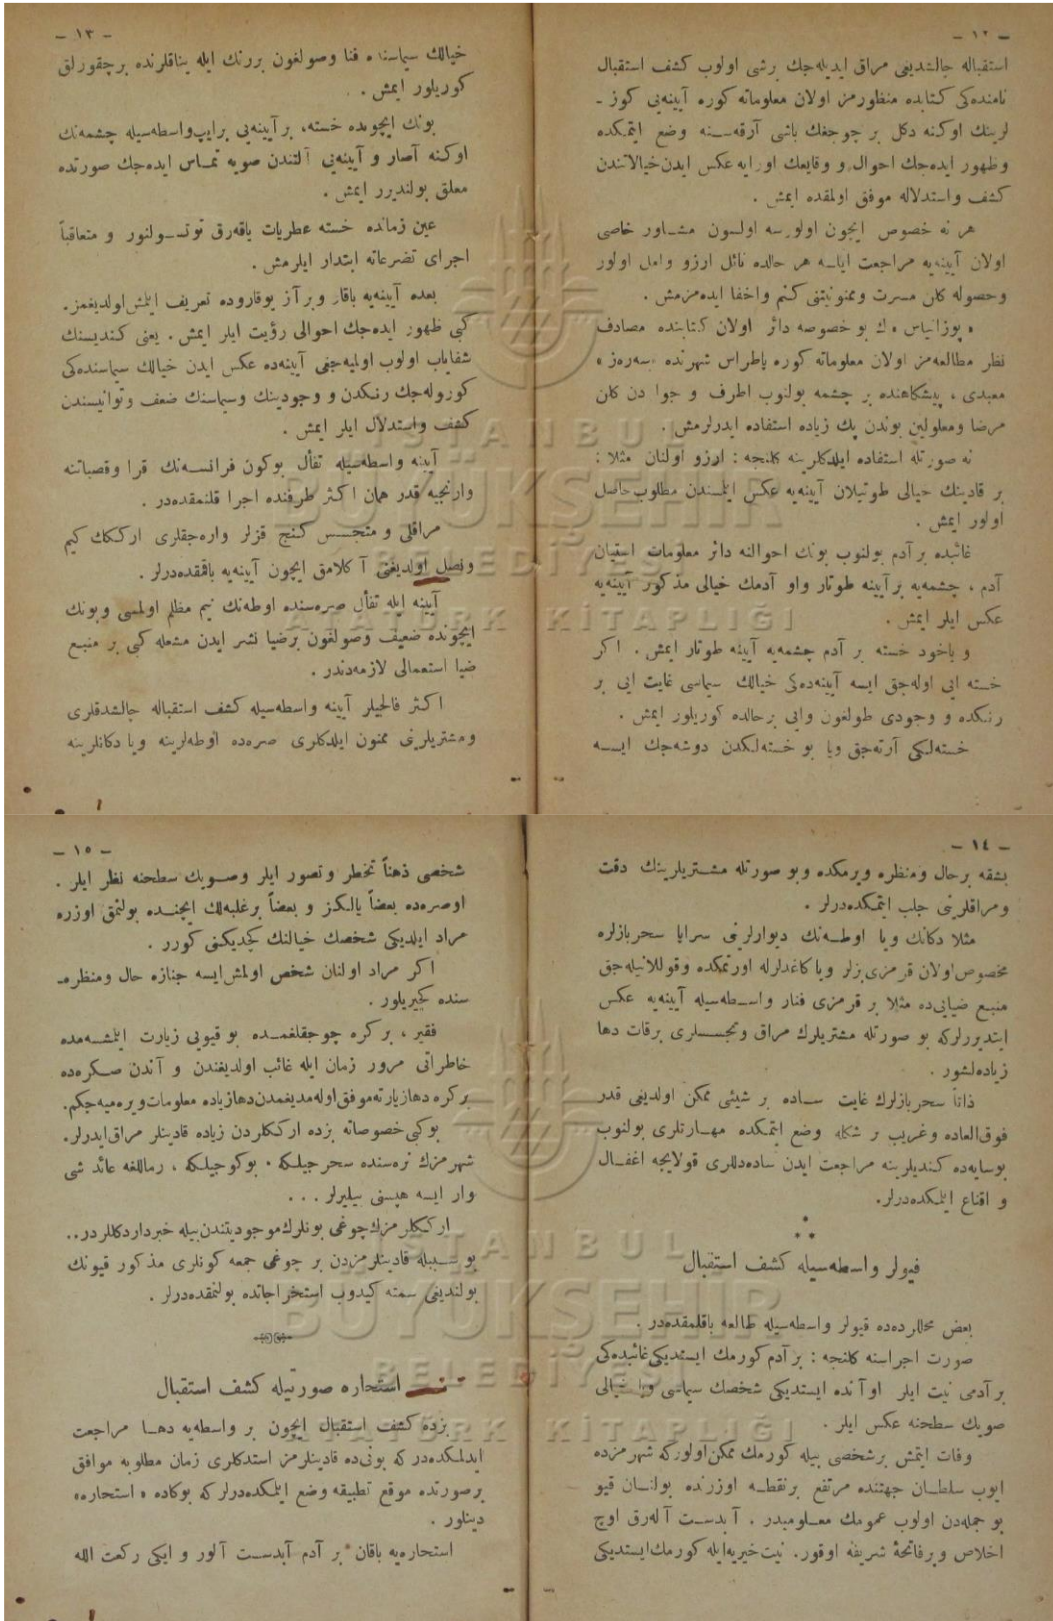 — ١٢ —
استقباله چالشدیغی مراق ایدیله‌جك برشی اولوب كشف استقبال
نامنده‌كی كتابده منظورمز اولان معلوماته كوره آیینه‌یی كوز -
لرینك اوكنه دكل بر چوجغك باشی آرقه‌سنه وضع ایتمكده
وظهور ایده‌جك احوال و وقایعك اورایه عكس ایدن خیالاتندن
كشف واستدلاله موفق اولمقده ایمش .
هر نه خصوص ایچون اولورسه اولسون مشاور خاصی
اولان آیینه‌یه مراجعت ایلسه هر حالده نائل آرزو وامل اولور
وحصوله كلن مسرت وممنونیتنی كتم واخفا ایده‌مزمش .
« پوزانیاس » ك بو خصوصه دائر اولان كتابنده مصادف
نظر مطالعه‌مز اولان معلوماته كوره پاطراس شهرنده «سه‌ره‌ز»
معبدی ، پیشكاهنده بر چشمه بولنوب اطراف و جواردن كلن
مرضا ومعلولین بوندن پك زیاده استفاده ایدرلرمش .
نه صورتله استفاده ایلدكلرینه كلنجه : آرزو اولنان مثلا :
بر قادینك خیالی طوتیلان آیینه‌یه عكس ایلمسندن مطلوب حاصل
اولور ایمش .
غائبده بر آدم بولنوب بونك احوالنه دائر معلومات استیان
آدم ، چشمه‌یه بر آیینه طوتار واو آدمك خیالی مذكور آیینه‌یه
عكس ایلر ایمش .
و یاخود خسته بر آدم چشمه‌یه آیینه طوتار ایمش . اكر
خسته ایی اوله‌جق ایسه آیینه‌ده‌كی خیالك سیماسی غایت ایی بر
رنكده و وجودی طولغون وایی برحالده كوریلور ایمش .
خسته‌لكی آرته‌جق ویا بو خسته‌لكدن دوشه‌جك ایسه
— ١٣ —
خیالك سیماسنده فنا وصولغون بررنك ایله یناقلرنده برچقورلق
كوریلور ایمش .
بونك ایچونده خسته، بر آیینه‌یی برایپ‌واسطه‌سیله چشمه‌نك
اوكنه آصار و آیینه‌یی آلتندن صویه تماس ایده‌جك صورتده
معلق بولندیرر ایمش .
عین زمانده خسته عطریات یاقه‌رق توتسولنور و متعاقباً
اجرای تضرعاته ابتدار ایلرمش .
بعده آیینه‌یه باقار وبر آز یوقاروده تعریف ایلمش‌اولدیغمز.
كبی ظهور ایده‌جك احوالی رؤیت ایلر ایمش . یعنی كندیسنك
شفایاب اولوب اولمیه‌جغی آیینه‌ده عكس ایدن خیالك سیماسنده‌كی
كوروله‌جك رنكدن و وجودینك وسیماسنك ضعف وتوانیسندن
كشف واستدلال ایلر ایمش .
آیینه واسطه‌سیله تفأل بوكون فرانسه‌نك قرا وقصباتنه
وارنجیه قدر همان اكثر طرفنده اجرا قلنمقده‌در .
مراقلی و متجسس كنج قزلر واره‌جقلری اركك كیم
ونصل اولدیغنی آكلامق ایچون آیینه‌یه باقمقده‌درلر .
آیینه ایله تفأل صره‌سنده اوطه‌نك نیم مظلم اولمسی وبونك
ایچونده ضعیف وصولغون برضیا نشر ایدن مشعله كبی بر منبع
ضیا استعمالی لازمه‌دندر .
اكثر فالجیلر آیینه واسطه‌سیله كشف استقباله چالشدقلری
ومشتریلرینی ممنون ایلدكلری صره‌ده اوطه‌لرینه ویا دكانلرینه
— ١٤ —
بشقه برحال ومنظره ویرمكده وبو صورتله مشتریلرینك دقت
ومراقلرینی جلب ایتمكده‌درلر .
مثلا دكانك ویا اوطه‌نك دیوارلرینی سرایا سحربازلره
مخصوص‌اولان قرمزی بزلر ویا كاغدلرله اورتمكده وقوللانیله‌جق
منبع ضیایی‌ده مثلا بر قرمزی فنار واسطه‌سیله آیینه‌یه عكس
ایتدیررلركه بو صورتله مشتریلرك مراق وتجسسلری برقات دها
زیاده‌لشور .
ذاتا سحربازلرك غایت ساده بر شیئی ممكن اولدیغی قدر
فوق‌العاده وغریب بر شكله وضع ایتمكده مهارتلری بولنوب
بوسایه‌ده كندیلرینه مراجعت ایدن ساده‌دللری قولایجه اغفال
و اقناع ایلمكده‌درلر.
* * *
قیولر واسطه‌سیله كشف استقبال
بعض محللرده‌ده قیولر واسطه‌سیله طالعه باقلمقده‌در .
صورت اجراسنه كلنجه : بر آدم كورمك ایستدیكی‌غائبده‌كی
بر آدمی نیت ایلر او آنده ایستدیكی شخصك سیماسی ویا خیالی
صویك سطحنه عكس ایلر .
وفات ایتمش برشخصی بیله كورمك ممكن‌اولوركه شهرمزده
ایوب سلطان جهتنده مرتفع برنقطه اوزرنده بولنان قیو
بو جمله‌دن اولوب عمومك معلومیدر . آبدست آله‌رق اوچ
اخلاص وبرفاتحهٔ شریفه اوقور. نیت‌خیریه‌ایله كورمك‌ایستدیكی
— ١٥ —
شخصی ذهناً تخطر وتصور ایلر وصویك سطحنه نظر ایلر .
اوصره‌ده بعضاً یالكز و بعضاً برغلبه‌لك ایچنده بولنمق اوزره
مراد ایلدیكی شخصك خیالنك كچدیكنی كورر .
اكر مراد اولنان شخص اولمش‌ایسه جنازه حال ومنظره-
سنده كچیریلور .
فقیر ، بر كره چوجقلغمده بو قیویی زیارت ایلمشسه‌مده
خاطراتی مرور زمان ایله غائب اولدیغندن و آندن صكره‌ده
بركره دهازیارته‌موفق‌اوله‌مدیغمدن‌دهازیاده معلومات‌ویره‌میه‌جكم.
بوكبی خصوصاته بزده ارككلردن زیاده قادینلر مراق‌ایدرلر.
شهرمزك نره‌سنده سحرجیلكه ، بوكوجیلكه ، رماللغه عائد شی
وار ایسه هپسنی بیلیرلر . . .
ارككلرمزك‌چوغی بونلرك‌موجودیتندن‌بیله خبرداردكللردر..
بو سببله قادینلرمزدن بر چوغی جمعه كونلری مذكور قیونك
بولندیغی سمته كیدوب استخراجاتده بولنمقده‌درلر .
استخاره صورتیله كشف استقبال
بزده كشف استقبال ایچون بر واسطه‌یه دها مراجعت
ایدلمكده‌در كه بونی‌ده قادینلرمز استدكلری زمان مطلوبه موافق
برصورتده موقع تطبیقه وضع ایلمكده‌درلر كه بوكاده « استخاره»
دینلور .
استخاره‌یه یاقان بر آدم آبدست آلور و ایكی ركعت الله
İSTANBUL
BÜYÜKŞEHİR
BELEDİYESİ
ATATÜRK KİTAPLIĞI
İSTANBUL
BÜYÜKŞEHİR
BELEDİYESİ
ATATÜRK KİTAPLIĞI